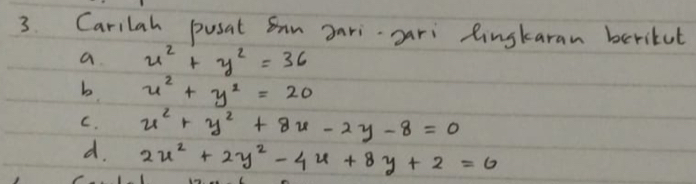 3. Carilah pusat dan jari-jari lingkaran berikut
a. x² + y² = 36
b. x² + y² = 20
c. x² + y² + 8x - 2y - 8 = 0
d. 2x² + 2y² - 4x + 8y + 2 = 0